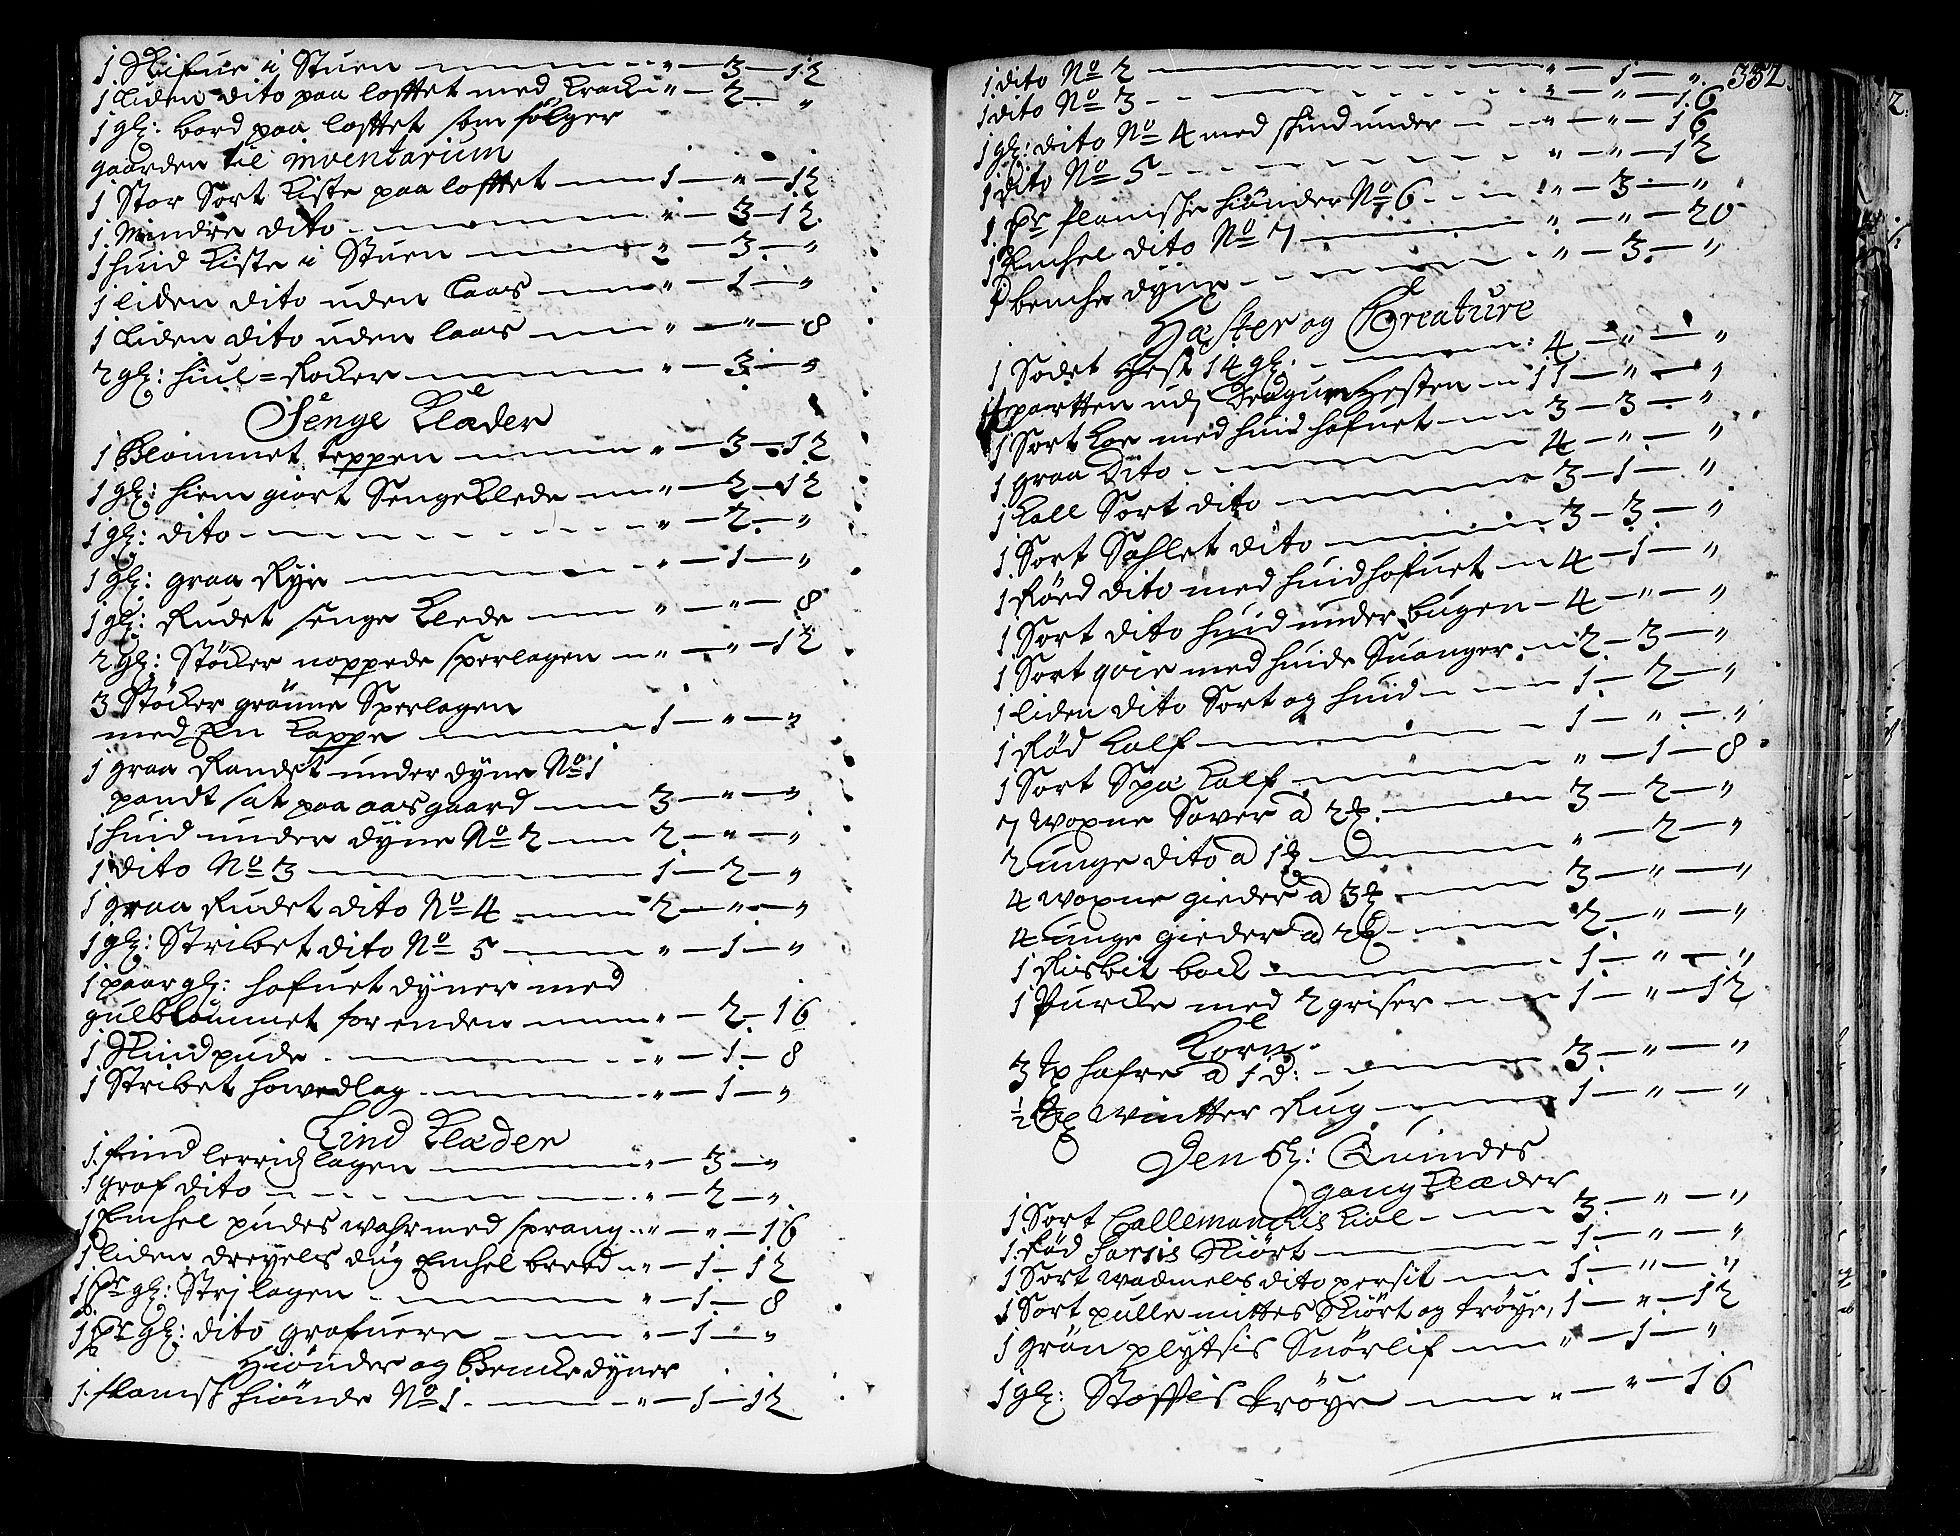 1 Skifue i Stuen — " — 3 — 12
1 liden dito paa lofttet med krack — " — 2 — "
1 gl: bord paa lofttet som fölger
gaarden til inventarium
1 Stor Sort Kiste paa lofttet — 1 — " — 12
1 Mindre dito — " — 3 — 12
1 huid Kiste i Stuen — " — 3 — "
1 liden dito uden Laas — " — 1 — "
1 Liden dito uden laas — " — " — 8
2 gl: hiul=Rocker — " — 3 — "
Senge Klæder
1 Blommet teppen — " — 3 — 12
1 gl: hiem giort Senge Klede — " — 2 — 12
1 gl: dito — " — 2 — "
1 gl: graa Rye — " — 1 — "
1 gl: Rudet senge Klede — " — " — 8
2 gl: Stöcker noppede sperlagen — " — " — 12
3 Stöcker grönne Sperlagen
med En Kappe — 1 — " — "
1 graa Randet under dyne No 1
pandt sat paa aasgaard — 3 — " — "
1 huid under dyne No 2 — 2 — " — "
1 dito No 3 — 1 — 2 — "
1 graa Rudet dito No 4 — 2 — " — "
1 gl: Stribet dito No 5 — " — 1 — "
1 paar gl: hofuet dyner med
gulblommet for enden — " — 2 — 16
1 Skind pude — " — 1 — 8
1 Stribet howedlag — " — 1 — "
Lind Klæder
1 find lerrids lagen — " — 3 — "
1 grof dito — " — 2 — "
1 Enchel pudes wahr med sprang — " — " — 16
1 liden dreyels dug Enchel breed — " — 1 — 12
1 Pr gl: Stri lagen — " — 1 — 8
1 Pr gl: dito grofuere — " — 1 — "
Hiönder og Bencke dyner
1 flamsk hiönde No 1 — " — 1 — 12
352.
1 dito No 2 — " — 1 — "
1 dito No 3 — " — " — 16
1 gl: dito No 4 med skind under — " — " — 16
1 dito No 5 — " — " — 12
1 Pr flamske hiönder No 6 — " — 3 — "
1 Enchel dito No 7 — " — " — 20
1 bencke dyne — " — 3 — "
Hæster og Creature
1 Sodet Hest 14 gl: — 4 — " — "
parten udj Dragun Hesten — 11 — " — "
1 Sort Koe med huid hofuet — 3 — 3 — "
1 graa Dito — 4 — " — "
1 Kall Sort dito — 3 — 1 — "
1 Sort Sahlet dito — 3 — 3 — "
1 Röed dito med huid hofuet — 4 — 1 — "
1 Sort dito huid under bugen — 4 — " — "
1 Sort qvie med huide Suanger — 2 — 3 — "
1 liden dito Sort og huid — 1 — 2 — "
1 Rød Kalf — 1 — " — "
1 Sort Spæ Kalf — " — 1 — 8
7 woxne Sover a 2 — 3 — 2 — "
2 unge dito a 1 — " — 2 — "
4 woxne gieder a 3 — 3 — " — "
4 unge gieder a 2 — 2 — " — "
1 Risbit bock — 1 — " — "
1 Purcke med 2 griser — 1 — " — 12
Korn
3 tp hafre a 1 d: — 3 — " — "
1/2 tp wintter Rug — 1 — " — "
Den Sl: Quindes
gang Klæder
1 Sort Callemanckis Kiol — 3 — " — "
1 Rød Sarsis Skiört — 1 — " — "
1 Sort wadmels dito persit — 1 — " — "
1 Sort pullemittes Skiört og tröye, 1 — " — 12
1 grön plytsis Snörlif — " — 1 — "
1 gl: Stoffis tröye — " — " — 16